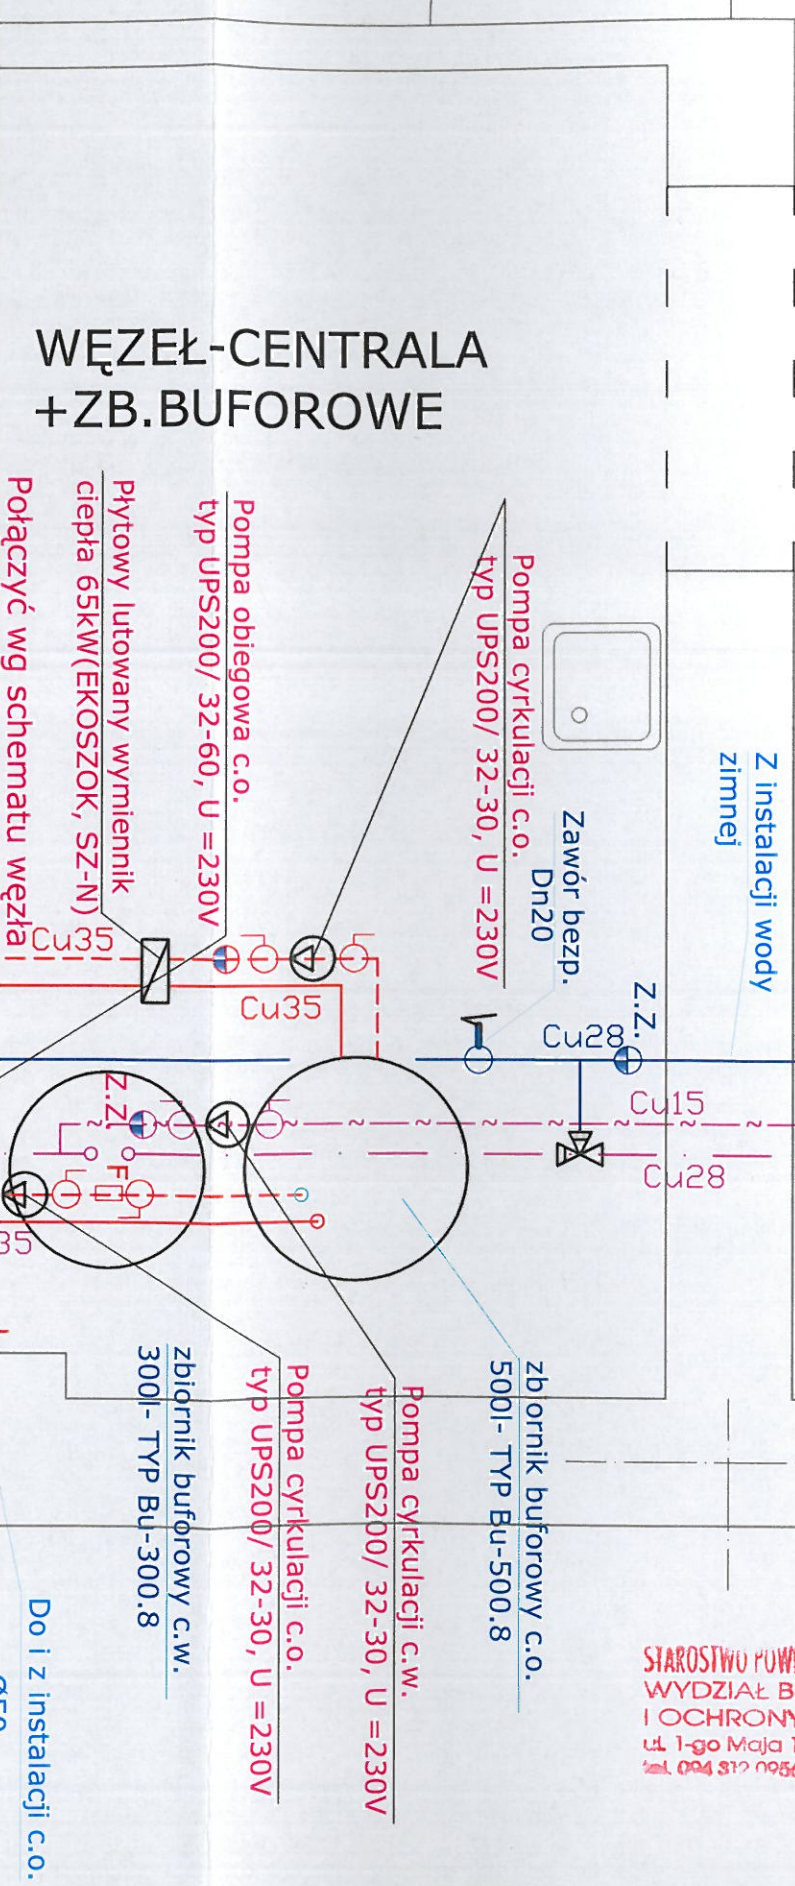 WĘZEŁ-CENTRALA
+ZB.BUFOROWE
Pompa cyrkulacji c.o.
typ UPS200/ 32-30, U =230V
Pompa obiegowa c.o.
typ UPS200/ 32-60, U =230V
Płytowy lutowany wymiennik
ciepła 65kW(EKOSZOK, SZ-N)
Połączyć wg schematu węzła
Z instalacji wody
zimnej
Zawór bezp.
Dn20
Z.Z.
Cu35
Cu35
Cu28
Cu15
Cu28
Z.Z.
F
35
zbiornik buforowy c.o.
500l- TYP Bu-500.8
Pompa cyrkulacji c.w.
typ UPS200/ 32-30, U =230V
Pompa cyrkulacji c.o.
typ UPS200/ 32-30, U =230V
zbiornik buforowy c.w.
300l- TYP Bu-300.8
Do i z instalacji c.o.
STAROSTWO POW
WYDZIAŁ B
I OCHRONY
ul. 1-go Maja 1
tel. 094 312 095